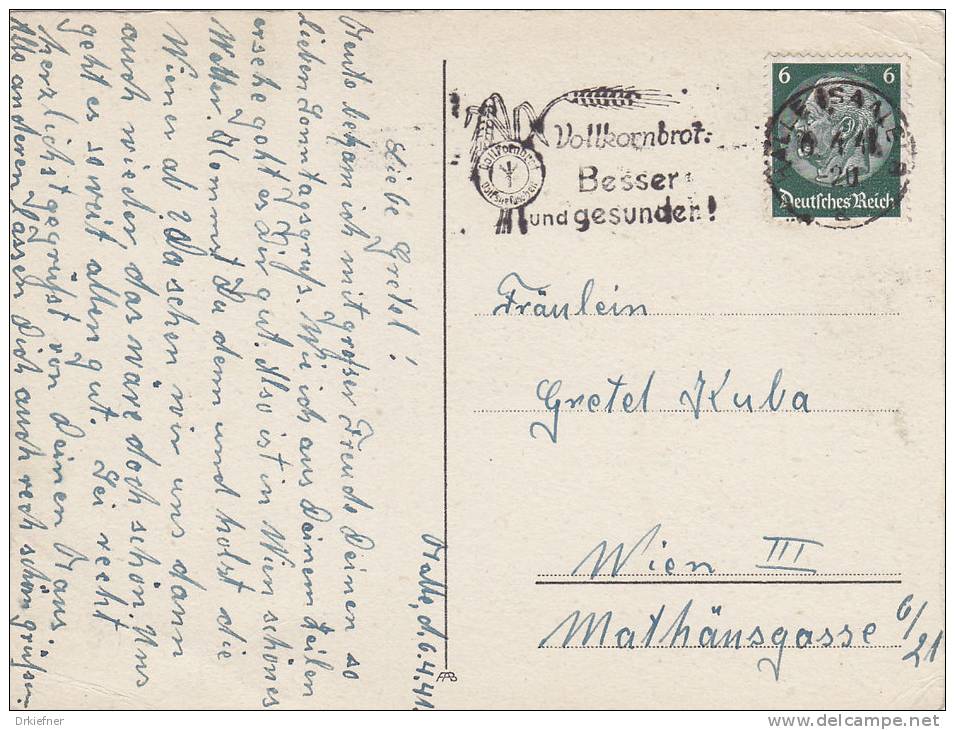 Halle, d. 6.4.41.
Liebe Gretel!
Heute bekam ich mit großer Freude Deinen so
lieben Sonntagsgruß. Wie ich aus Deinem Zeilen
ersehe geht es Dir gut. Also ist in Wien schönes
Wetter. Kommst Du denn und holst die
Wiener ab? Da sehen wir uns dann
auch wieder das wäre doch schön. Uns
geht es soweit allen gut. Sei recht
herzlichst gegrüßt von Deinen Hans.
Alle anderen lassen Dich auch rech schön grüßen.
Vollkornbrot:
Besser
und gesunder!
Vollkornbrot
HALLE (SAALE)
-20
6 6
Deutsches Reich
Fräulein
Gretel Kuba
Wien III
Mathäusgasse 6/21
Drkiefner
www.delcampe.net